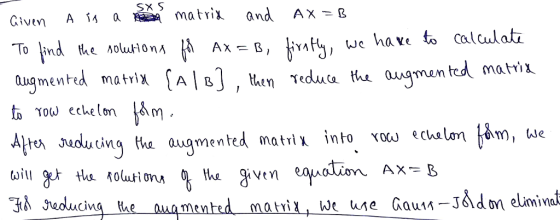 Given A is a 5x5 matrix and AX = B
To find the solutions for AX = B, firstly, we have to calculate
augmented matrix [A|B], then reduce the augmented matrix
to row echelon form.
After reducing the augmented matrix into row echelon form, we
will get the solutions of the given equation AX = B
For reducing the augmented matrix, we use Gauss-Jordon eliminat